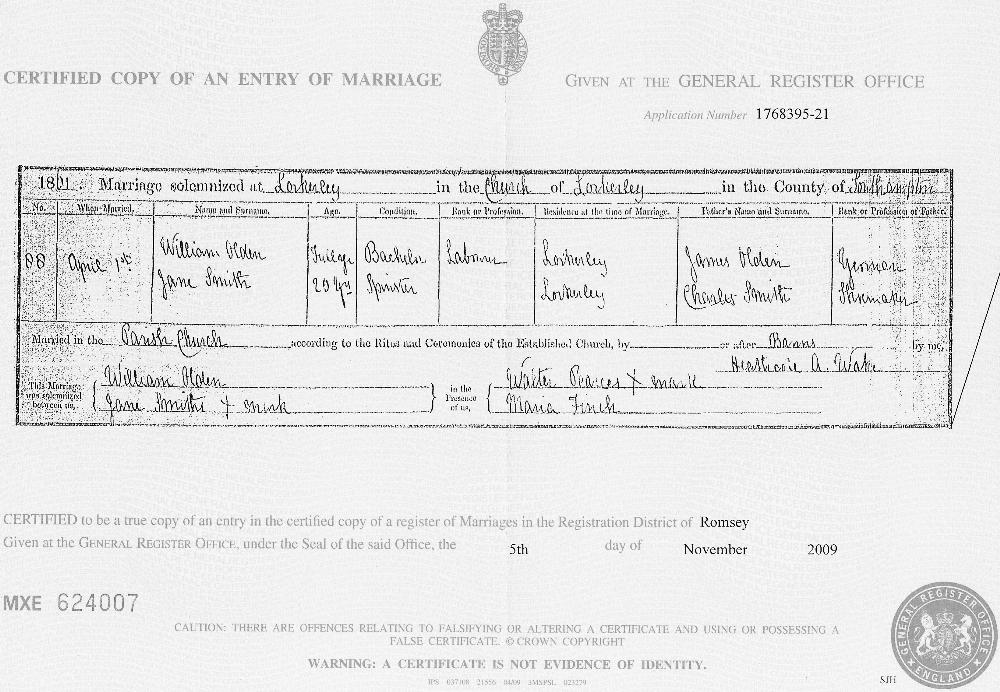 CERTIFIED COPY OF AN ENTRY OF MARRIAGE
GIVEN AT THE GENERAL REGISTER OFFICE
Application Number 1768395-21
1861. Marriage solemnized at Lockerley in the Church of Lockerley in the County of Southampton
No. When Married. Name and Surname. Age. Condition. Rank or Profession. Residence at the time of Marriage. Father's Name and Surname. Rank or Profession of Father.
98 April 1st
William Olden Full age Bachelor Labourer Lockerley James Olden Yeoman
Jane Smith 20 yrs Spinster Lockerley Charles Smith Shoemaker
Married in the Parish Church according to the Rites and Ceremonies of the Established Church, by or after Banns by me,
Heathcote A. Wake
This Marriage was solemnized between us,
William Olden
Jane Smith X mark
in the Presence of us,
Walter Pearces X mark
Maria Finch
CERTIFIED to be a true copy of an entry in the certified copy of a register of Marriages in the Registration District of Romsey
Given at the GENERAL REGISTER OFFICE, under the Seal of the said Office, the 5th day of November 2009
MXE 624007
CAUTION: THERE ARE OFFENCES RELATING TO FALSIFYING OR ALTERING A CERTIFICATE AND USING OR POSSESSING A
FALSE CERTIFICATE. © CROWN COPYRIGHT
WARNING: A CERTIFICATE IS NOT EVIDENCE OF IDENTITY.
GENERAL REGISTER OFFICE
ENGLAND